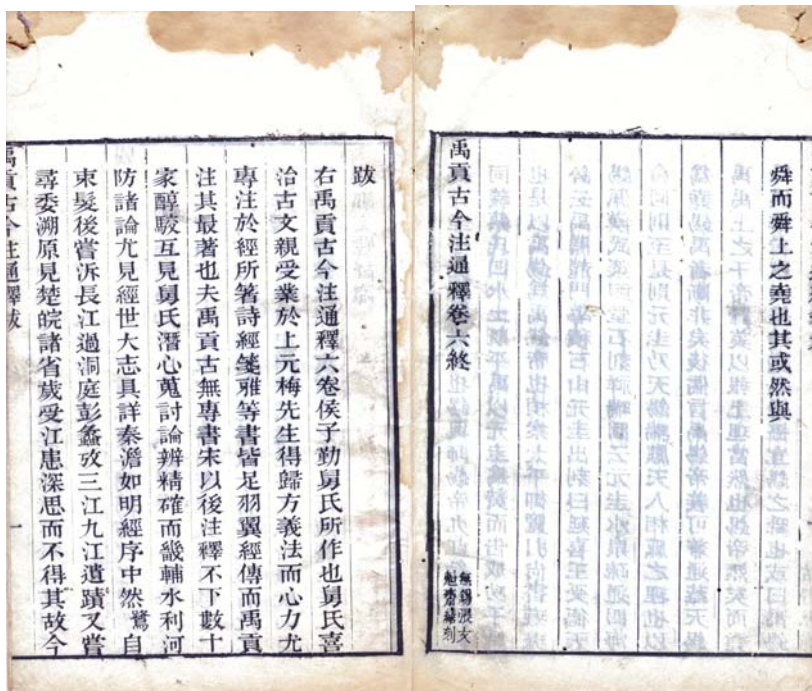 舜而舜上之堯也其或然與
禹貢古今注通釋卷六終
無錫
跋
右禹貢古今注通釋六卷侯子勤舅氏所作也舅氏喜
治古文親受業於上元梅先生得歸方義法而心力尤
專注於經所箸詩經箋雅等書皆足羽翼經傳而禹貢
注其最著也夫禹貢古無專書宋以後注釋不下數十
家醇駁互見舅氏潛心蒐討論辨精確而畿輔水利河
防諸論尤見經世大志具詳秦澹如明經序中然自
束髮後嘗泝長江過洞庭彭蠡攷三江九江遺蹟又嘗
尋委溯原見楚皖諸省歲受江患深思而不得其故今
禹貢古今注通釋跋 一